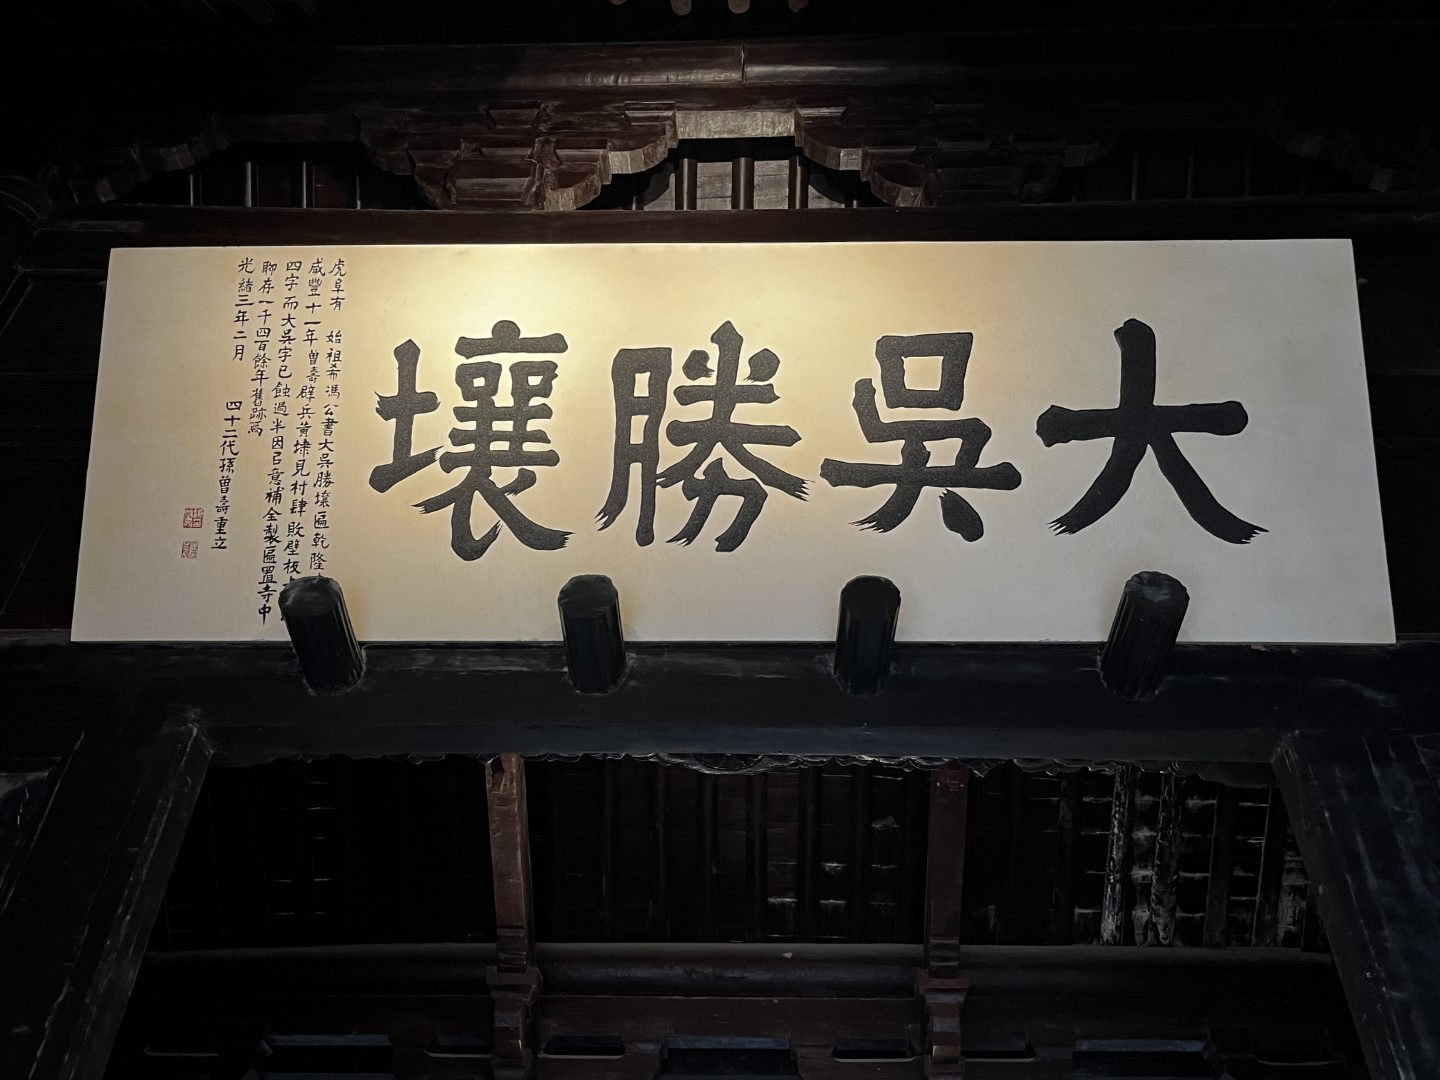 大吳勝壤
虎阜有 始祖希馮公書大吳勝壤匾乾隆
咸豐十一年曾壽辟兵黃埭見村肆敗壁板
四字而大吳字已蝕過半因以意補全製匾置寺中
聊存一千四百餘年舊跡焉
光緒三年二月 四十二代孫曾壽重立